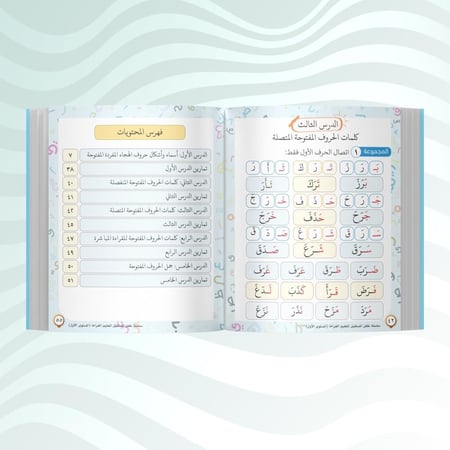 الدرس الثالث
كلمات الحروف المفتوحة المتصلة
المجموعة ١ اتصال الحرف الأول فقط:
بَـ رَ زَ تَـ رَ كَ ثَـ أَ رَ
بَرَزَ تَرَكَ ثَأَرَ
جَـ رَ حَ حَـ ذَ فَ خَـ رَ جَ
جَرَحَ حَذَفَ خَرَجَ
سَـ رَ قَ شَـ رَ عَ صَـ دَ قَ
سَرَقَ شَرَعَ صَدَقَ
ضَرَبَ طَرَقَ عَرَفَ غَرَفَ
فَرَضَ قَرَأَ كَذَبَ لَدَغَ
مَرَدَ مَزَحَ نَذَرَ نَزَعَ
سلسلة طفل المستقبل لتعليم القراءة (المستوى الأول)
٤٢
فهرس المحتويات
الدرس الأول: أسماء وأشكال حروف الهجاء المفردة المفتوحة ٧
تمارين الدرس الأول ٣٨
الدرس الثاني: كلمات الحروف المفتوحة المنفصلة ٤٠
تمارين الدرس الثاني ٤١
الدرس الثالث: كلمات الحروف المفتوحة المتصلة ٤٢
تمارين الدرس الثالث ٤٥
الدرس الرابع: كلمات الحروف المفتوحة للقراءة المباشرة ٤٧
تمارين الدرس الرابع ٤٩
الدرس الخامس: جمل الحروف المفتوحة ٥٠
تمارين الدرس الخامس ٥١
سلسلة طفل المستقبل لتعليم القراءة (المستوى الأول)
٥٥